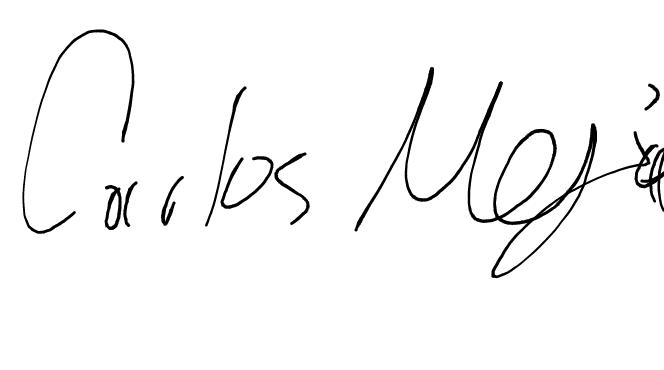 Carlos Mejía